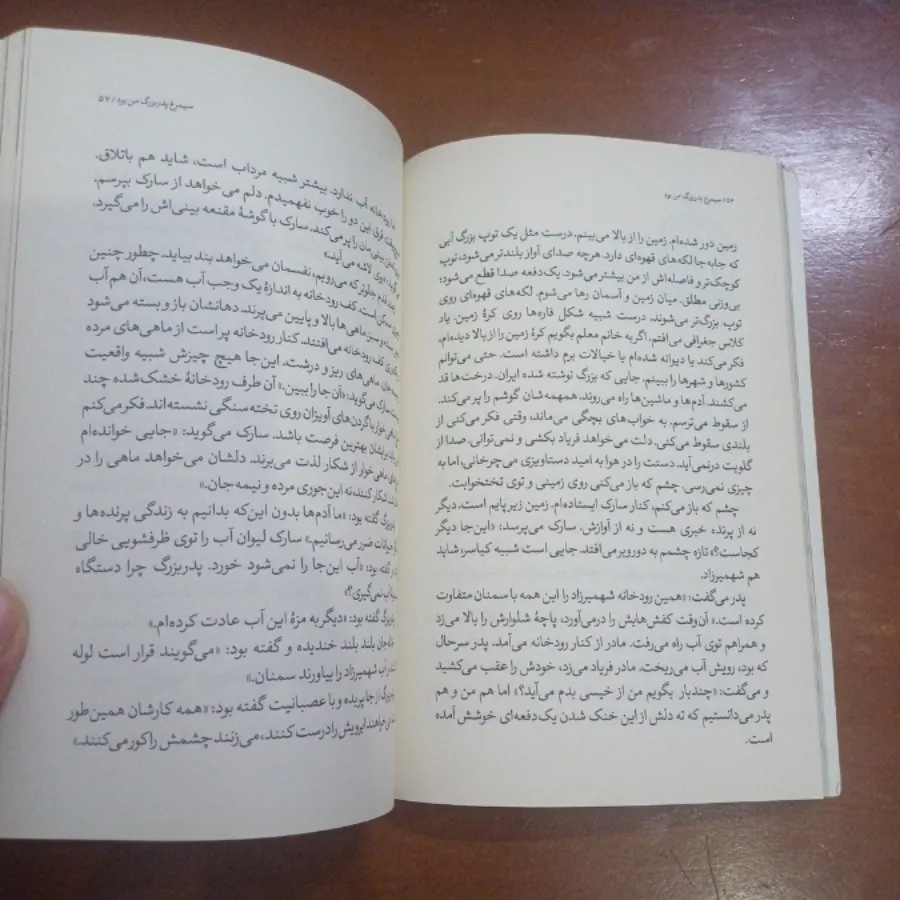 ۵۶/ سیمرغ پدربزرگ من بود
زمین دور شده‌ام. زمین را از بالا می‌بینم، درست مثل یک توپ بزرگ آبی
که جابه‌جا لکه‌های قهوه‌ای دارد. هرچه صدای آواز بلندتر می‌شود، توپ
کوچک‌تر و فاصله‌اش از من بیشتر می‌شود. یک دفعه صدا قطع می‌شود؛
بی‌وزنی مطلق. میان زمین و آسمان رها می‌شوم. لکه‌های قهوه‌ای روی
توپ، بزرگ‌تر می‌شوند. درست شبیه شکل قاره‌ها روی کرهٔ زمین. یاد
کلاس جغرافی می‌افتم. اگر به خانم معلم بگویم کرهٔ زمین را از بالا دیده‌ام،
فکر می‌کند یا دیوانه شده‌ام یا خیالات برم داشته است. حتی می‌توانم
کشورها و شهرها را ببینم. جایی که بزرگ نوشته شده ایران. درخت‌ها قد
می‌کشند. آدم‌ها و ماشین‌ها راه می‌روند. همهمه‌شان گوشم را پر می‌کند.
از سقوط می‌ترسم. به خواب‌های بچگی می‌ماند؛ وقتی فکر می‌کنی از
بلندی سقوط می‌کنی. دلت می‌خواهد فریاد بکشی و نمی‌توانی. صدا از
گلویت درنمی‌آید. دستت را در هوا به امید دستاویزی می‌چرخانی، اما به
چیزی نمی‌رسی. چشم که باز می‌کنی روی زمینی و توی تختخوابت.
چشم که باز می‌کنم، کنار سارک ایستاده‌ام. زمین زیر پایم است. دیگر
نه از پرنده خبری هست و نه از آوازش. سارک می‌پرسد: «این‌جا دیگر
کجاست؟» تازه چشمم به دوروبر می‌افتد. جایی است شبیه کیاسر، شاید
هم شهمیرزاد.
پدر می‌گفت: «همین رودخانه شهمیرزاد را این همه با سمنان متفاوت
کرده است.» آن‌وقت کفش‌هایش را درمی‌آورد، پاچهٔ شلوارش را بالا می‌زد
و همراهم توی آب راه می‌رفت. مادر از کنار رودخانه می‌آمد. پدر سرحال
که بود، رویش آب می‌ریخت. مادر فریاد می‌زد، خودش را عقب می‌کشید
و می‌گفت: «چندبار بگویم من از خیسی بدم می‌آید؟» اما هم من و هم
پدر می‌دانستیم که ته دلش از این خنک شدن یک‌دفعه‌ای خوشش آمده
است.
سیمرغ پدربزرگ من بود / ۵۷
رودخانه آب ندارد. بیشتر شبیه مرداب است، شاید هم باتلاق.
فرق این دو را خوب نفهمیدم. دلم می‌خواهد از سارک بپرسم.
بینی‌مان را پر می‌کند. سارک با گوشهٔ مقنعه بینی‌اش را می‌گیرد.
لاشه می‌آید.»
قدم جلوتر که می‌رویم، نفسمان می‌خواهد بند بیاید. چطور چنین
ممکن است. کف رودخانه به اندازهٔ یک وجب آب هست، آن هم آب
و سبز. ماهی‌ها بالا و پایین می‌پرند. دهانشان باز و بسته می‌شود
کف رودخانه می‌افتند. کنار رودخانه پر است از ماهی‌های مرده
ماهی‌های ریز و درشت. این‌جا هیچ چیزش شبیه واقعیت
سارک می‌گوید: «آن‌جا را ببین.» آن طرف رودخانهٔ خشک‌شده چند
خوار با گردن‌های آویزان روی تخته‌سنگی نشسته‌اند. فکر می‌کنم
برایشان بهترین فرصت باشد. سارک می‌گوید: «جایی خوانده‌ام
ماهی‌خوار از شکار لذت می‌برند. دلشان می‌خواهد ماهی را در
شکار کنند، نه این جوری مرده و نیمه‌جان.»
گفته بود: «ما آدم‌ها بدون این‌که بدانیم به زندگی پرنده‌ها و
حیوانات ضرر می‌رسانیم.» سارک لیوان آب را توی ظرفشویی خالی
گفته بود: «آب این‌جا را نمی‌شود خورد. پدربزرگ چرا دستگاه
نمی‌گیری؟»
گفته بود: «دیگر به مزهٔ این آب عادت کرده‌ام.»
بلند بلند خندیده و گفته بود: «می‌گویند قرار است لوله
آب شهمیرزاد را بیاورند سمنان.»
از جا پریده و با عصبانیت گفته بود: «همه کارشان همین‌طور
می‌خواهند ابرویش را درست کنند، می‌زنند چشمش را کور می‌کنند.»